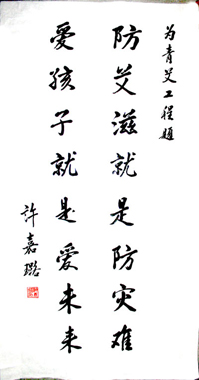 为青艾工程题
防艾滋就是防灾难
爱孩子就是爱未来
許嘉璐